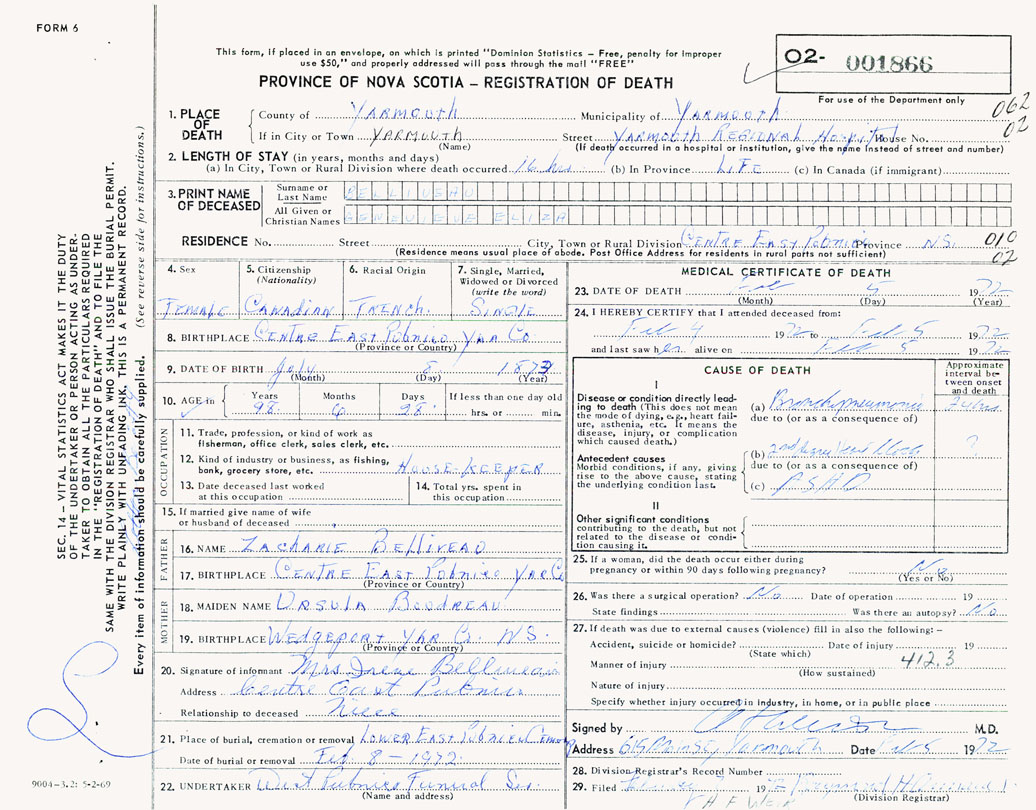 FORM 6
This form, if placed in an envelope, on which is printed "Dominion Statistics – Free, penalty for improper
use $50," and properly addressed will pass through the mail "FREE"
PROVINCE OF NOVA SCOTIA – REGISTRATION OF DEATH
O2- 001866
For use of the Department only
062
02
1. PLACE OF DEATH
County of YARMOUTH Municipality of YARMOUTH
If in City or Town YARMOUTH Street YARMOUTH REGIONAL HOSPITAL House No.
(Name) (If death occurred in a hospital or institution, give the name instead of street and number)
2. LENGTH OF STAY (in years, months and days)
(a) In City, Town or Rural Division where death occurred 16 hrs (b) In Province LIFE (c) In Canada (if immigrant)
3. PRINT NAME OF DECEASED
Surname or Last Name BELLIVEAU
All Given or Christian Names GENEVIEVE ELIZA
RESIDENCE No. Street City, Town or Rural Division CENTRE EAST PUBNICO Province N.S. 010
02
(Residence means usual place of abode. Post Office Address for residents in rural parts not sufficient)
4. Sex
FEMALE
5. Citizenship
(Nationality)
CANADIAN
6. Racial Origin
FRENCH
7. Single, Married,
Widowed or Divorced
(write the word)
SINGLE
8. BIRTHPLACE CENTRE EAST PUBNICO YAR CO
(Province or Country)
9. DATE OF BIRTH July 8 1873
(Month) (Day) (Year)
10. AGE in
Years Months Days If less than one day old
98 6 28 hrs. or min.
OCCUPATION
11. Trade, profession, or kind of work as
fisherman, office clerk, sales clerk, etc.
12. Kind of industry or business, as fishing,
bank, grocery store, etc. HOUSE-KEEPER
13. Date deceased last worked
at this occupation
14. Total yrs. spent in
this occupation
15. If married give name of wife
or husband of deceased
FATHER
16. NAME ZACHARIE BELLIVEAU
17. BIRTHPLACE CENTRE EAST PUBNICO YAR CO
(Province or Country)
MOTHER
18. MAIDEN NAME URSULA BOUDREAU
19. BIRTHPLACE WEDGEPORT YAR CO. N.S.
(Province or Country)
20. Signature of informant Mrs Irene Belliveau
Address Centre East Pubnico
Relationship to deceased Niece
21. Place of burial, cremation or removal LOWER EAST PUBNICO
Date of burial or removal Feb 8 - 1972
22. UNDERTAKER West Pubnico Funeral Ser.
(Name and address)
MEDICAL CERTIFICATE OF DEATH
23. DATE OF DEATH Feb 5 1972
(Month) (Day) (Year)
24. I HEREBY CERTIFY that I attended deceased from:
Feb 4 1972 to Feb 5 1972
and last saw her alive on Feb 5 1972
CAUSE OF DEATH
Approximate
interval be-
tween onset
and death
I
Disease or condition directly lead-
ing to death (This does not mean
the mode of dying, e.g., heart fail-
ure, asthenia, etc. It means the
disease, injury, or complication
which caused death.)
(a) Bronchopneumonia
due to (or as a consequence of)
Antecedent causes
Morbid conditions, if any, giving
rise to the above cause, stating
the underlying condition last.
(b) 2nd degree heart block ?
due to (or as a consequence of)
(c) A.S.H.D
II
Other significant conditions
contributing to the death, but not
related to the disease or condi-
tion causing it.
25. If a woman, did the death occur either during
pregnancy or within 90 days following pregnancy? No
(Yes or No)
26. Was there a surgical operation? No Date of operation 19
State findings Was there an autopsy? No
27. If death was due to external causes (violence) fill in also the following: –
Accident, suicide or homicide? Date of injury 19
(State which)
412.3
Manner of injury
(How sustained)
Nature of injury
Specify whether injury occurred in industry, in home, or in public place
Signed by M.D.
Address Yarmouth Date Feb 5 1972
28. Division Registrar's Record Number
29. Filed 19
(Division Registrar)
SEC. 14 – VITAL STATISTICS ACT MAKES IT THE DUTY
OF THE UNDERTAKER OR PERSON ACTING AS UNDER-
TAKER TO OBTAIN ALL THE PARTICULARS REQUIRED
IN THE "REGISTRATION OF DEATH" AND TO FILE THE
SAME WITH THE DIVISION REGISTRAR WHO SHALL ISSUE THE BURIAL PERMIT.
WRITE PLAINLY WITH UNFADING INK, THIS IS A PERMANENT RECORD.
Every item of information should be carefully supplied. (See reverse side for instructions.)
9004-3.2: 5-2-69